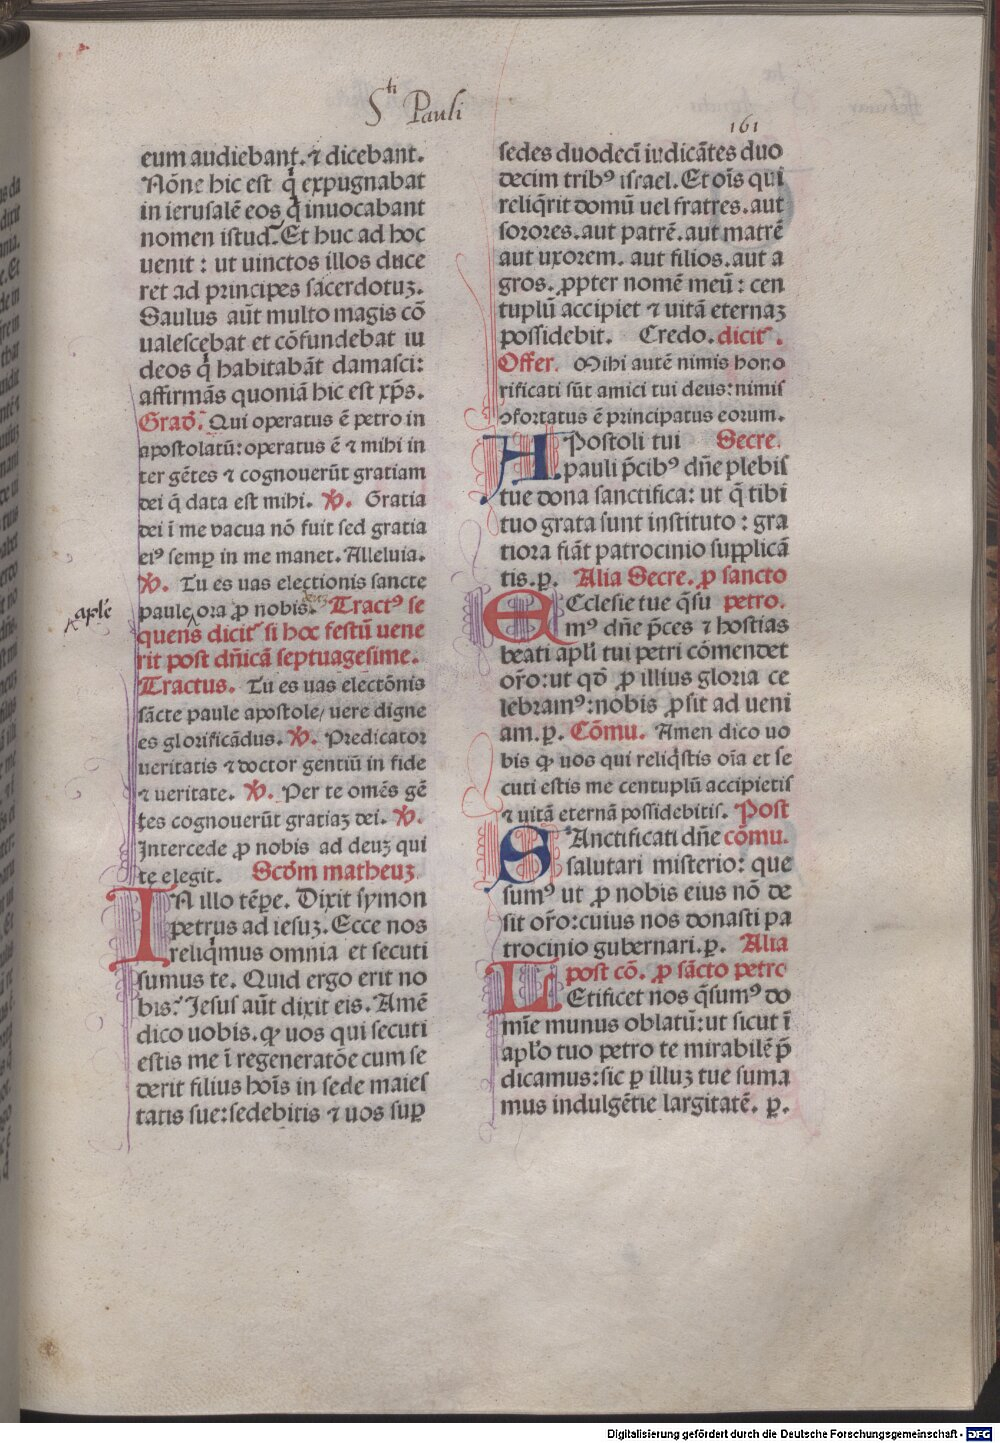 Sti Pauli
161
eum audiebant. ⁊ dicebant.
Nōne hic est q̇ expugnabat
in ierusalē eos q̇ inuocabant
nomen istud. Et huc ad hoc
uenit : ut uinctos illos duce
ret ad principes sacerdotuꝫ.
Saulus aūt multo magis cō
ualescebat et cōfundebat iu
deos q̇ habitabāt damasci:
affirmās quoniā hic est xp̄s.
Grad̄. Qui operatus ē petro in
apostolatū: operatus ē ⁊ mihi in
ter gētes ⁊ cognouerūt gratiam
dei q̄ data est mihi. ℣. Gratia
dei ī me vacua nō fuit sed gratia
eiꝰ semꝑ in me manet. Alleluia.
℣. Tu es uas electionis sancte
aplē
paule ora ꝓ nobis. Tractꝰ se
quens dicit̄ si hoc festū uene
rit post dn̄icā septuagesime.
Tractus. Tu es uas electōnis
sācte paule apostole, uere digne
es glorificādus. ℣. Predicator
ueritatis ⁊ doctor gentiū in fide
⁊ ueritate. ℣. Per te omēs gē
tes cognouerūt gratiaꝫ dei. ℣.
Intercede ꝓ nobis ad deuꝫ qui
te elegit. Scd̄m matheuꝫ
IN illo tēpe. Dixit symon
petrus ad iesuꝫ. Ecce nos
reliq̇mus omnia et secuti
sumus te. Quid ergo erit no
bis. Jesus aūt dixit eis. Amē
dico uobis. ꝙ uos qui secuti
estis me ī regeneratōe cum se
derit filius hoīs in sede maies
tatis sue: sedebitis ⁊ uos suꝑ
sedes duodecī iudicātes duo
decim tribꝰ israel. Et oīs qui
reliq̄rit domū uel fratres. aut
sorores. aut patrē. aut matrē
aut uxorem. aut filios. aut a
gros. ꝓpter nomē meū: cen
tuplū accipiet ⁊ uitā eternaꝫ
possidebit. Credo. dicit̄.
Offer. Mihi autē nimis hono
rificati sūt amici tui deus: nimis
ↄfortatus ē principatus eorum.
APostoli tui Secre.
pauli p̄cibꝰ dn̄e plebis
tue dona sanctifica: ut q̄ tibi
tuo grata sunt instituto : gra
tiora fiāt patrocinio supplicā
tis. ꝑ. Alia Secre. ꝓ sancto
ECclesie tue q̄su petro.
mꝰ dn̄e p̄ces ⁊ hostias
beati apl̄i tui petri cōmendet
or̄o: ut qd̄ ꝓ illius gloria ce
lebramꝰ: nobis ꝓsit ad ueni
am. ꝑ. Cōmu. Amen dico uo
bis ꝙ uos qui reliq̇stis oīa et se
cuti estis me centuplū accipietis
⁊ uitā eternā possidebitis. Post
SAnctificati dn̄e cōmu.
salutari misterio: que
sumꝰ ut ꝓ nobis eius nō de
sit or̄o: cuius nos donasti pa
trocinio gubernari. ꝑ. Alia
post cō. ꝓ sācto petro
LEtificet nos q̄sumꝰ do
mīe munus oblatū: ut sicut ī
apl̄o tuo petro te mirabilē p̄
dicamus: sic ꝑ illuꝫ tue suma
mus indulgētie largitatē. ꝑ.
Digitalisierung gefördert durch die Deutsche Forschungsgemeinschaft - DFG